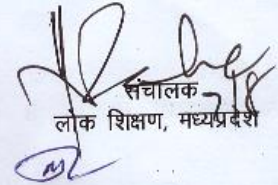 संचालक
लोक शिक्षण, मध्यप्रदेश